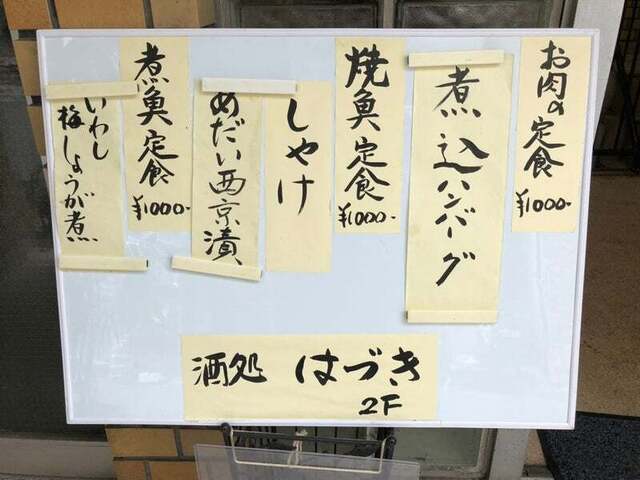 お肉の定食
¥1000-
煮込ハンバーグ
焼魚定食
¥1000-
しゃけ
めだい西京漬
煮魚定食
¥1000-
いわし
梅しょうが煮
酒処 はづき
2F